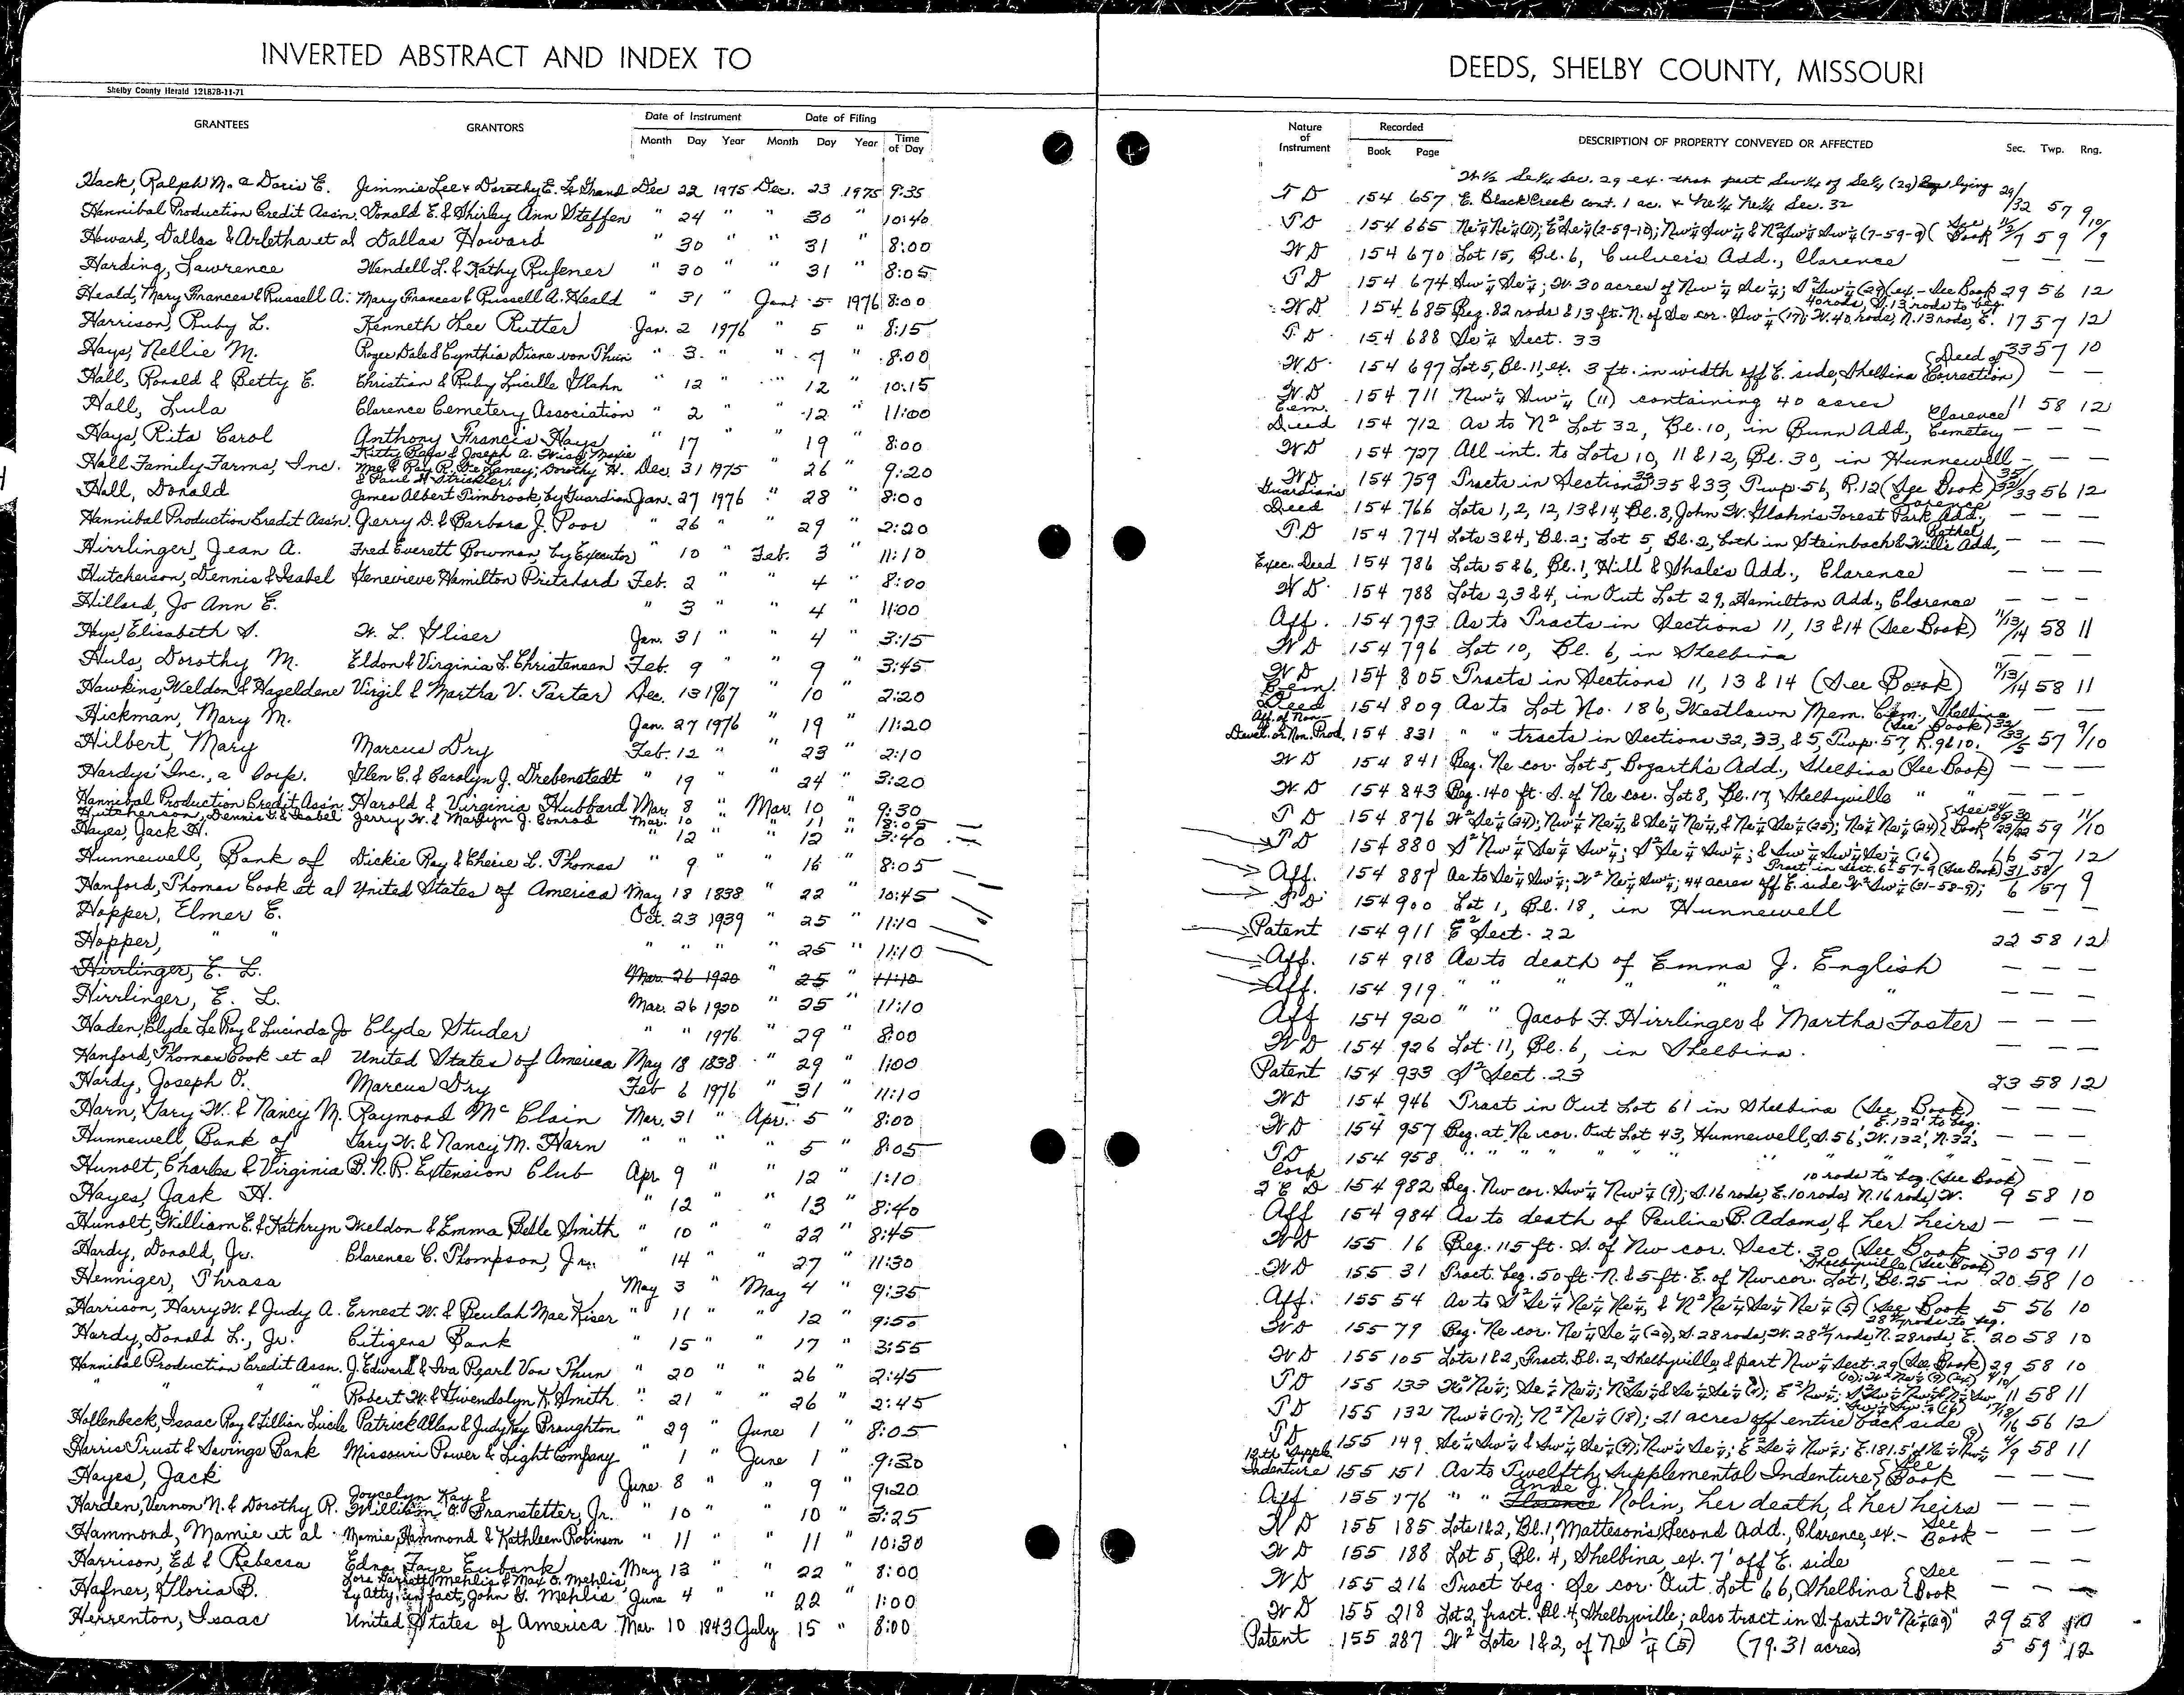 INVERTED ABSTRACT AND INDEX TO
Shelby County Herald 12187B-11-71
GRANTEES GRANTORS Date of Instrument Month Day Year Date of Filing Month Day Year Time of Day
Hack, Ralph M. & Doris E. Jimmie Lee & Dorothy E. Le Grand Dec 22 1975 Dec. 23 1975 9:35
Hannibal Production Credit Assn. Donald E. & Shirley Ann Steffen " 24 " " 30 " 10:40
Howard, Dallas & Arletha et al Dallas Howard " 30 " " 31 " 8:00
Harding, Lawrence Wendell L. & Kathy Rufener " 30 " " 31 " 8:05
Heald, Mary Frances & Russell A. Mary Frances & Russell A. Heald " 31 " Jan. 5 1976 8:00
Harrison, Ruby L. Kenneth Lee Rutter Jan. 2 1976 " 5 " 8:15
Hays, Nellie M. Roger Dale & Cynthia Diane von Thun " 3 " " 7 " 8:00
Hall, Ronald & Betty E. Christian & Ruby Lucille Glahn " 12 " " 12 " 10:15
Hall, Lula Clarence Cemetery Association " 2 " " 12 " 11:00
Hays, Rita Carol Anthony Francis Hays " 17 " " 19 " 8:00
Hall Family Farms, Inc. Mae & Ray R. Dorothy H. & Paul H. Strickler Dec. 31 1975 " 26 " 9:20
Hall, Donald James Albert Timbrook, by Guardian Jan. 27 1976 " 28 " 8:00
Hannibal Production Credit Assn. Jerry D. & Barbara J. Poor " 26 " " 29 " 2:20
Hirrlinger, Jean A. Fred Everett Bowman, by Executor " 10 " Feb. 3 " 11:10
Hutcherson, Dennis & Isabel Genevieve Hamilton Pritchard Feb. 2 " " 4 " 8:00
Hillard, Jo Ann E. " 3 " " 4 " 11:00
Hays, Elisabeth S. W. L. Gliser Jan. 31 " " 4 " 3:15
Huls, Dorothy M. Eldon & Virginia L. Christensen Feb. 9 " " 9 " 3:45
Hawkins, Weldon & Hazeldene Virgil & Martha V. Tarter Dec. 13 1967 " 10 " 2:20
Hickman, Mary M. Jan. 27 1976 " 19 " 11:20
Hilbert, Mary Marcus Dry Feb. 12 " " 23 " 2:10
Hardys' Inc., a Corp. Glen C. & Carolyn J. Drebenstedt " 19 " " 24 " 3:20
Hannibal Production Credit Assn. Harold & Virginia Hubbard Mar. 8 " Mar. 10 " 9:30
Hutcherson, Dennis & Isabel Jerry W. & Marilyn J. Conrad Mar. 10 " 11 " 8:05
Hayes, Jack H. " 12 " " 12 " 3:40
Hunnewell, Bank of Dickie Ray & Cherie L. Thomas " 9 " " 16 " 8:05
Hanford, Thomas Cook et al United States of America May 18 1838 " 22 " 10:45
Hopper, Elmer E. Oct. 23 1939 " 25 " 11:10
Hopper, " " " " " " 25 " 11:10
Hirrlinger, E. L. Mar. 26 1920 " 25 " 11:10
Hirrlinger, E. L. Mar. 26 1920 " 25 " 11:10
Haden, Clyde Le Roy & Lucinda Jo Clyde Studer " " 1976 " 29 " 8:00
Hanford, Thomas Cook et al United States of America May 18 1838 " 29 " 1:00
Hardy, Joseph O. Marcus Dry Feb 6 1976 " 31 " 11:10
Harn, Gary W. & Nancy M. Raymond Mc Clain Mar. 31 " Apr. 5 " 8:00
Hunnewell Bank of Gary W. & Nancy M. Harn " " " " 5 " 8:05
Hunolt, Charles & Virginia B.N.R. Extension Club Apr. 9 " " 12 " 1:10
Hayes, Jack H. " 12 " " 13 " 8:40
Hunolt, William E. & Kathryn Weldon & Emma Belle Smith " 10 " " 22 " 8:45
Hardy, Donald, Jr. Clarence C. Thompson, Jr. " 14 " " 27 " 11:30
Henniger, Thrasa May 3 " May 4 " 9:35
Harrison, Harry W. & Judy A. Ernest W. & Beulah Mae Kiser " 11 " " 12 " 9:50
Hardy, Donald L., Jr. Citizens Bank " 15 " " 17 " 3:55
Hannibal Production Credit Assn. J. Edward & Iva Pearl Von Thun " 20 " " 26 " 2:45
" " " Robert W. & Gwendolyn K. Smith " 21 " " 26 " 2:45
Hollenbeck, Isaac Ray & Lillian Lucile Patrick Allan & Judy Kay Broughton " 29 " June 1 " 8:05
Harris Trust & Savings Bank Missouri Power & Light Company " 1 " June 1 " 9:30
Hayes, Jack June 8 " " 9 " 9:20
Harden, Vernon N. & Dorothy R. Joycelyn Kay & William O. Branstetter, Jr. " 10 " " 10 " 3:25
Hammond, Mamie et al Mamie Hammond & Kathleen Robinson " 11 " " 11 " 10:30
Harrison, Ed & Rebecca Edna Faye Eubank May 13 " " 22 " 8:00
Hafner, Gloria B. Lora Garrett Mehlis & Max O. Mehlis, by Atty. in fact, John G. Mehlis June 4 " " 22 " 1:00
Herrenton, Isaac United States of America Mar. 10 1843 July 15 " 8:00
DEEDS, SHELBY COUNTY, MISSOURI
Nature of Instrument Recorded Book Page DESCRIPTION OF PROPERTY CONVEYED OR AFFECTED Sec. Twp. Rng.
W½ Se¼ Sec. 29 ex. that part Sw¼ of Se¼ (29) lying 29/
T D 154 657 E. Black Creek cont. 1 ac. & Ne¼ Ne¼ Sec. 32 32 57 9
T D 154 665 Ne¼ Ne¼ (11); E²Se¼ (2-59-10); Nw¼ Sw¼ & N²Sw¼ Sw¼ (7-59-9) (See Book 11/2/7 59 10/9
W D 154 670 Lot 15, Bl. 6, Culver's Add., Clarence — — —
T D 154 674 Sw¼ Se¼; W. 30 acres of Nw¼ Se¼; S²Sw¼ (29) ex.- See Book 29 56 12
W D 154 685 Beg. 82 rods & 13 ft. N. of Se cor. Sw¼ (17); W. 40 rods, N. 13 rods, E. 40 rods, S. 13 rods to beg. 17 57 12
T D 154 688 Se¼ Sect. 33 33 57 10
W D 154 697 Lot 5, Bl. 11, ex. 3 ft. in width off E. side, Shelbina (Deed of Correction) — —
W D 154 711 Nw¼ Sw¼ (11) containing 40 acres 11 58 12
Cem. Deed 154 712 As to N² Lot 32, Bl. 10, in Bunn Add., Clarence Cemetery — — —
W D 154 727 All int. to Lots 10, 11 & 12, Bl. 30, in Hunnewell — — —
W D 154 759 Tracts in Sections 32, 35 & 33, Twp. 56, R. 12 (See Book) 35/32/33 56 12
Guardian's Deed 154 766 Lots 1, 2, 12, 13 & 14, Bl. 8, John W. Glahn's Forest Park Add., Clarence — — —
T D 154 774 Lots 3 & 4, Bl. 2; Lot 5, Bl. 2, both in Steinbach & Will's Add., Bethel — — —
Exec. Deed 154 786 Lots 5 & 6, Bl. 1, Hill & Shale's Add., Clarence — — —
W D 154 788 Lots 2, 3 & 4, in Out Lot 29, Hamilton Add., Clarence — — —
Aff. 154 793 As to Tracts in Sections 11, 13 & 14 (See Book) 11/13/14 58 11
W D 154 796 Lot 10, Bl. 6, in Shelbina — — —
W D 154 805 Tracts in Sections 11, 13 & 14 (See Book) 11/13/14 58 11
Cem. Deed 154 809 As to Lot No. 186, Westlawn Mem. Cem., Shelbina — —
Aff. of Non-Devel. or Non. Prod. 154 831 " " tracts in Sections 32, 33, & 5, Twp. 57, R. 9 & 10. (See Book) 32/33/5 57 9/10
W D 154 841 Beg. Ne cor. Lot 5, Bogarth's Add., Shelbina (See Book) — — —
W D 154 843 Beg. 140 ft. S. of Ne cor. Lot 8, Bl. 17, Shelbyville " " — — —
T D 154 876 W²Se¼ (24); Nw¼ Ne¼, & Se¼ Ne¼, & Ne¼ Se¼ (25); Ne¼ Ne¼ (24) (See Book 59 11/10
T D 154 880 S²Nw¼ Se¼ Sw¼; S²Se¼ Sw¼; & Sw¼ Sw¼ Se¼ (16) 16 57 12
Aff. 154 887 As to Se¼ Sw¼; W²Ne¼ Sw¼; 44 acres off E. side W²Sw¼ (31-58-9); Tract in Sect. 6-57-9 (See Book) 31/6 58/57 9
T D 154 900 Lot 1, Bl. 18, in Hunnewell — — —
Patent 154 911 E² Sect. 22 22 58 12
Aff. 154 918 As to death of Emma J. English — — —
Aff. 154 919 " " " " " " — — —
Aff 154 920 " " Jacob F. Hirrlinger & Martha Foster — — —
W D 154 926 Lot 11, Bl. 6, in Shelbina. — — —
Patent 154 933 S² Sect. 23 23 58 12
W D 154 946 Tract in Out Lot 61 in Shelbina (See Book) — — —
W D 154 957 Beg. at Ne cor. Out Lot 43, Hunnewell, S. 56', W. 132', N. 32', E. 132' to beg. — — —
T D 154 958 " " " " " " " " " — — —
Corp. Q C D 154 982 Beg. Nw cor. Sw¼ Nw¼ (9); S. 16 rods, E. 10 rods, N. 16 rods, W. 10 rods to beg. (See Book) 9 58 10
Aff 154 984 As to death of Pauline B. Adams, & her heirs — — —
W D 155 16 Beg. 115 ft. S. of Nw cor. Sect. 30 (See Book 30 59 11
W D 155 31 Tract beg. 50 ft. N. & 5 ft. E. of Nw cor. Lot 1, Bl. 25 in Shelbyville (See Book) 20 58 10
Aff. 155 54 As to S²Se¼ Ne¼ Ne¼, & N²Ne¼ Se¼ Ne¼ (5) (See Book 5 56 10
W D 155 79 Beg. Ne cor. Ne¼ Se¼ (20), S. 28 rods, W. 28 4/7 rods, N. 28 rods, E. 28 4/7 rods to beg. 20 58 10
W D 155 105 Lots 1 & 2, Fract. Bl. 2, Shelbyville, & part Nw¼ Sect. 29 (See Book) 29 58 10
T D 155 133 11 58 11
T D 155 132 Nw¼ (17); N²Ne¼ (18); 21 acres off entire back side 17/18/16 56 12
T D 155 149 58 11
12th Supple Indenture 155 151 As to Twelfth Supplemental Indenture (See Book — — —
Aff 155 176 " " Florence Anne J. Nolin, her death, & her heirs — — —
W D 155 185 Lots 1 & 2, Bl. 1, Matteson's Second Add., Clarence, ex.- See Book — — —
W D 155 188 Lot 5, Bl. 4, Shelbina, ex. 7' off E. side
W D 155 216 Tract beg. Se cor. Out. Lot 66, Shelbina (See Book — — —
W D 155 218 Lot 2, fract. Bl. 4, Shelbyville; also tract in S part W²Ne¼ (29) 29 58 10
Patent 155 287 W² Lots 1 & 2, of Ne¼ (5) (79.31 acres) 5 59 12